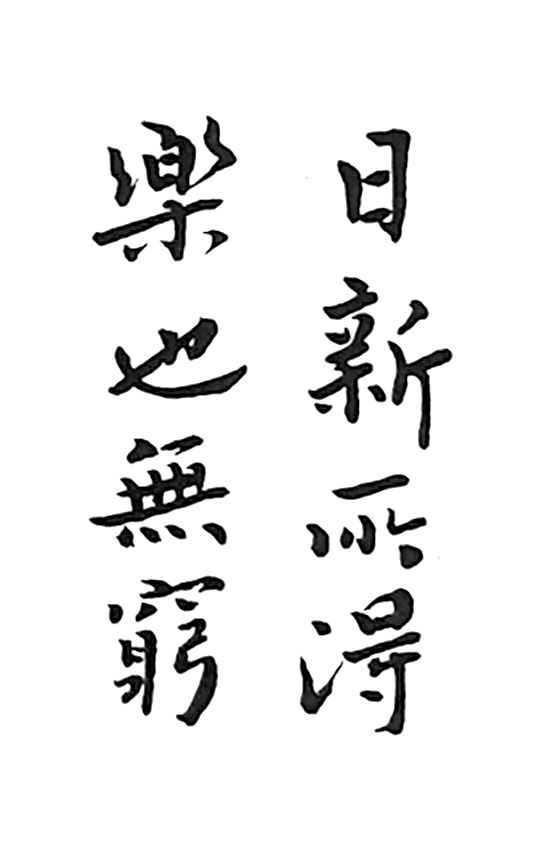 日新所得
樂也無窮